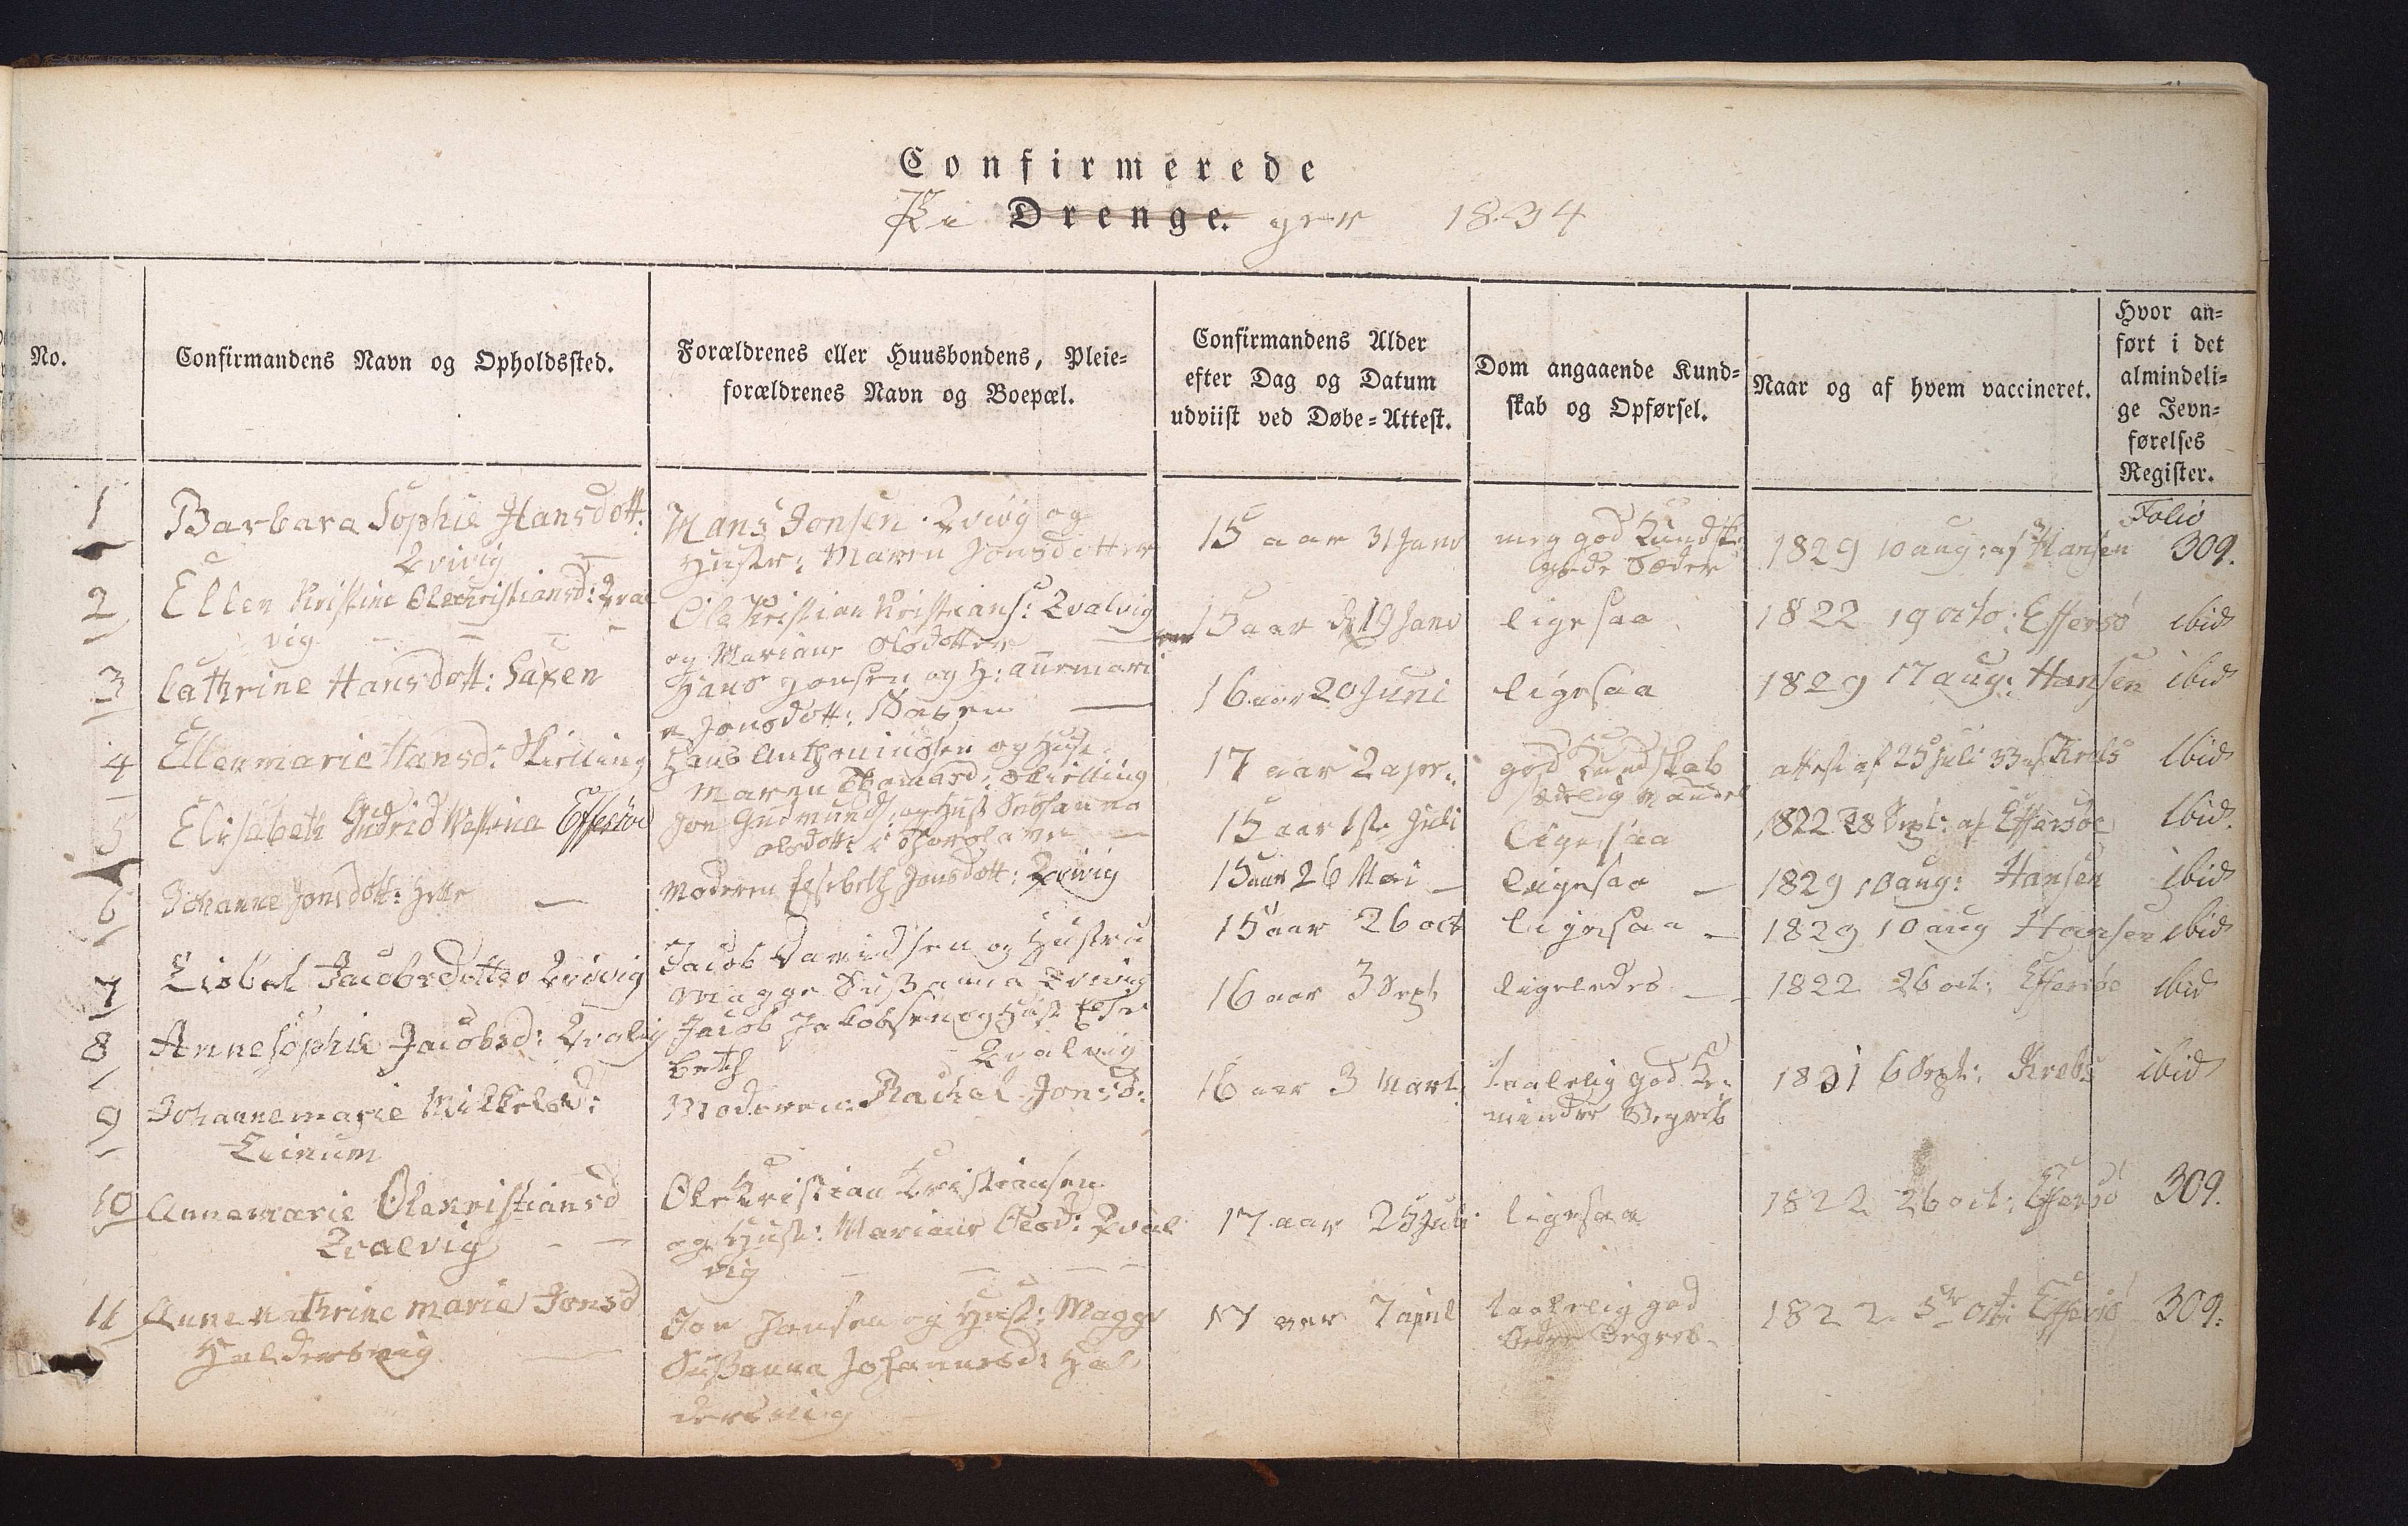 Confirmerede
Pi Drenge. ger 1834
No.
Confirmandens Navn og Opholdssted.
Forældrenes eller Huusbondens, Pleie-
forældrenes Navn og Boepæl.
Confirmandens Alder
efter Dag og Datum
udviist ved Døbe-Attest.
Dom angaaende Kund-
skab og Opførsel.
Naar og af hvem vaccineret.
Hvor an-
ført i det
almindeli-
ge Jevn-
førelses
Register.
1
Barbara Sophie Hansdott:
Qvivig
Hans Jonsen Qvivig og
Hustr: Maren Jonsdotter
15 aar 31 Janv
meg god Kundsk:
gode Sæder
1829 10 aug: af Hansen
Folio
309.
2
Ellen Kristine Olechristiansd: Qval
vig
Ole Kristian Kristians: Qvalvig
og Mariane Olsdotter
15 aar d 19 Janv
ligesaa
1822 19 octo: Effersö
ibid
3
Cathrine Hansdott: Saxen
Hans Jonsen og H: annemari
e Jonsdott: Saxen
16 aar 20 Juni
ligesaa
1829 17 aug: Hansen
ibid
4
Ellenmarie Hansd: Skielling
Hans Anthoniussen og Hust:
Maren Thomasd: Skielling
17 aar 2 apr:
god Kundskab
sædelig Vandel
attest af 25 Juli 33 af Krebs
Ibid
5
Elisabeth Gudrid Effersöe
Jon Gudmunds: og Hust Susanna
olsdott: i
15 aar 1ste Juli
ligesaa
1822 28 Sept: af Effersöe
Ibid.
6
Johanne Jonsdott:
Moderen Elsebeth Jonsdott: Qvivig
15 aar 26 Mai
ligesaa
1829 10 aug: Hansen
Ibid
7
Lisbet Jacobsdotter Qvivig
Jacob Davidsen og Hustru
Magge Susanna Qvivig
15 aar 26 oct
ligesaa
1829 10 aug Hansen
ibid
8
Annesophie Jacobsd: Qvalvig
Jacob Jakobsen og Hust Else
beth Qvalvig
16 aar 3 Sept
ligeledes
1822 26 oct: Effersöe
ibid
9
Johannemarie Mikkelsd:
Leinum
Moderen: Rachel Jonsd:
16 aar 3 Mart.
taalelig god K:
mindre Begreb
1831 6 Sept: Krebs
ibid
10
Annemarie Olekristiansd
Qvalvig
Ole Kristian Kristiansen
og Hust: Mariane Olsd: Qval
vig
17 aar 25 Juli
ligesaa
1822 26 oct: Effersö
309.
11
Anne Kathrine marie Jonsd
Haldersvig
Jon Jonsen og Hust: Magge
Susanna Johannesd: Hal
dersvig
17 aar 7 april
taalelig god
Begreb
1822 5te Oct: Effersö
309.